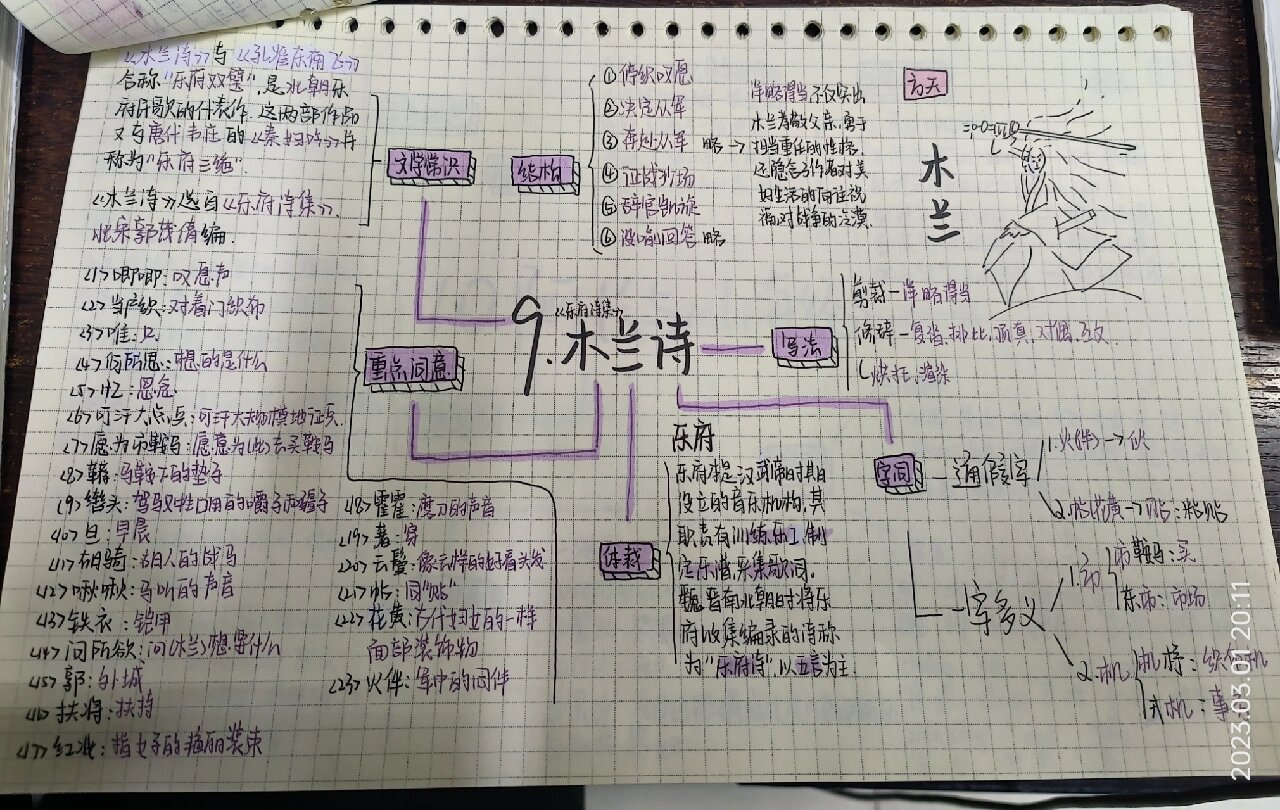 《木兰诗》与《孔雀东南飞》
合称"乐府双璧",是北朝乐
府民歌的代表作.这两部作品
又与唐代韦庄的《秦妇吟》并
称为"乐府三绝".
《木兰诗》选自《乐府诗集》.
北宋郭茂倩编.
文学常识
结构
①停织叹息
②决定从军
③奔赴从军 略→
④征战沙场
⑤辞官凯旋
⑥设喻回答 略
详略得当,不仅突出
木兰孝敬父亲,勇于
担当重任的性格,
还隐含了作者对美
好生活的向往祝
福,对战争的冷漠.
方天
木兰
9.木兰诗
《乐府诗集》
写法
剪裁—详略得当
修辞—复沓,排比,顶真,对偶,互文
夸张,渲染
重点词意
<1>唧唧:叹息声
<2>当户织:对着门织布
<3>唯:只
<4>何所思:想的是什么
<5>忆:思念
<6>可汗大点兵:可汗大规模地征兵
<7>愿为市鞍马:愿意为(此)去买鞍马
<8>鞯:马鞍下的垫子
<9>辔头:驾驭牲口用的嚼子和缰子
<10>旦:早晨
<11>胡骑:胡人的战马
<12>啾啾:马叫的声音
<13>铁衣:铠甲
<14>问所欲:问(木兰)想要什么
<15>郭:外城
<16>扶将:扶持
<17>红妆:指女子的艳丽装束
<18>霍霍:磨刀的声音
<19>著:穿
<20>云鬓:像云那样的好看头发
<21>帖:同"贴"
<22>花黄:古代妇女的一种
面部装饰物
<23>火伴:军中的同伴
体裁
乐府
乐府本是汉武帝时期
设立的音乐机构,其
职责有训练乐工,制
定乐谱,采集歌词.
魏晋南北朝时将乐
府收集编录的诗称
为"乐府诗",以五言为主.
字词
通假字
1.火(伴)→伙
2.帖花黄→贴:粘贴
一字多义
1.市
市鞍马:买
东市:市场
2.机
机杼:织布机
戎机:事
2023.03.01 20:11